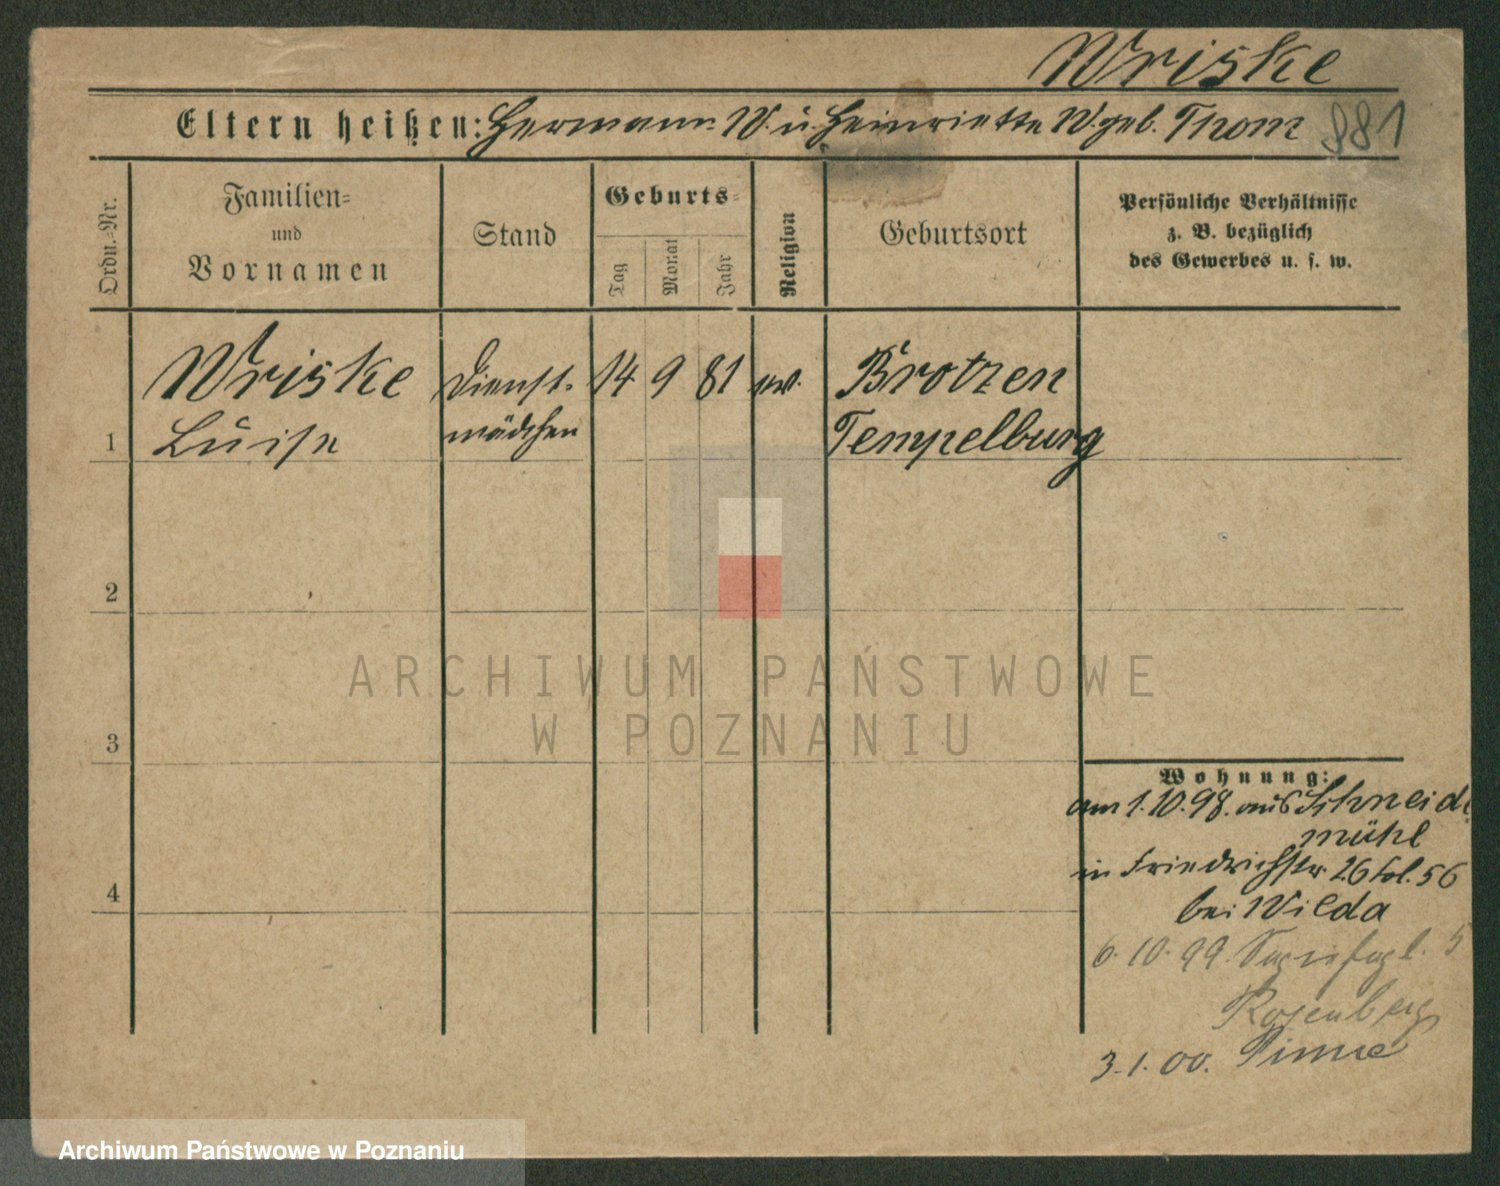 Wriske
Eltern heißen: Hermann W. u. Heinriette W. geb. Thom 881
Ordn.-Nr.
Familien-
und
Vornamen
Stand
Geburts-
Tag
Monat
Jahr
Religion
Geburtsort
Persönliche Verhältnisse
z. B. bezüglich
des Gewerbes u. s. w.
Wriske Dienst- 14 9 81 ev. Brotzen
1 Luise mädchen Tempelburg
2
3
4
ARCHIWUM PAŃSTWOWE
W POZNANIU
Wohnung:
am 1.10.98. aus Schneide
mühl
in Friedrichstr. 26 fol. 56
bei Wilda
6.10.99. 5
Rosenberg
3.1.00. Pinne
Archiwum Państwowe w Poznaniu